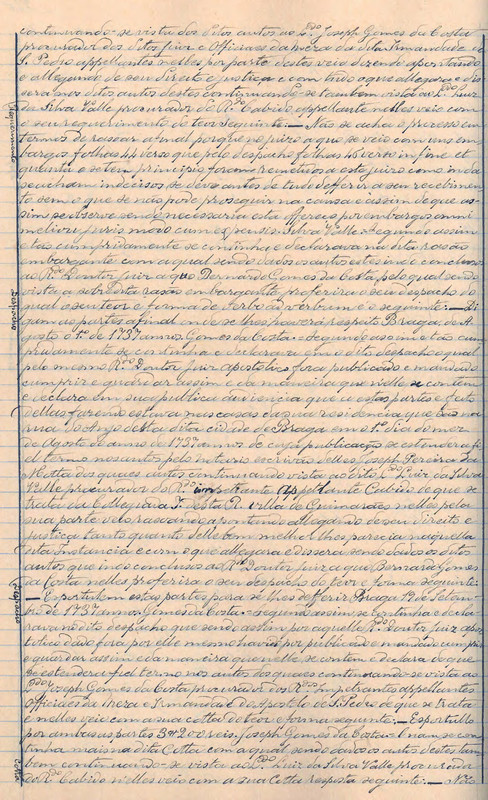 continuando-se vista dos ditos autos ao L.do Joseph Gomes da Costa
procurador dos ditos Juiz e Officiaes da meza da dita Irmandade de
S. Pedro appellantes nelles por parte destes veio dizendo apontando
e allegando de seu direito e justiça e com tudo o que allegara e dis
sera nos ditos autos destes continuando-se tambem vista ao L.do Luiz
da Silva Valle procurador do R.do Cabido appellante nelles veio com
o seu requerimento do teor seguinte: — Não se acha o processo em
termos de rasoar a final porque no juizo a quo se veio com uns em
bargos folhas 44 verso que pelo despacho folhas 46 verso in fine et
quinta e setem principio foram remettidos a este juizo como inda
se acham indecisos se deve antes de tudo defferir a seu recebimen
to sem o que se não pode proseguir na causa e assim de que as
sim se observe sendo necessaria esta offerece por embargos omni
meliori juris modo cum expensis. Silva Valle = segundo assim
e tão cumpridamente se continha e declarava na dita rasão
embargante com a qual sendo dados os autos estes indo conclusos
ao R.do Doutor Juiz a quo Bernardo Gomes da Costa, pelo qual sendo
vista a sobredita rasão embargante proferira o seu despacho do
qual o seu teor e forma de verbo ad verbum é o seguinte: — Di
gam as partes a final onde se lhes haverá respeito Braga, de A
gosto o 1.º de 1737 annos Gomes da Costa = segundo assim e tão cum
pridamente se continha e declarava em o dito despacho o qual
pelo mesmo R.do Doutor Juiz apostolico fora publicado e mandado
cumprir e guardar assim e da maneira que nelle se contem
e declara em sua publica audiencia que as estas partes e feito
dellas fazendo estava nas casas da sua residencia que são na
rua do Anjo desta dita cidade de Braga em o 1.º dia do mez
de Agosto do anno de 1737 annos. E cuja publicação se estendera fi
el termo nos autos pelo notario escrivão delles Joseph Pereira da
Motta dos quaes autos continuando vista ao dito L.do Luiz da Silva
Valle procurador do R.do impetrante appellante Cabido de que se
trata da Collegiada I. desta R. villa de Guimarães nelles pela
sua parte veio rasoando apontando allegando de seu direito e
justiça tanto quanto delle bem melhor lhes parecia naquella
dita Instancia e com o que allegara e dissera sendo dados os ditos
autos que indo conclusos ao R.do Doutor Juiz a quo Bernardo Gomes
da Costa nelles proferira o seu despacho do teor e forma seguinte:
— Esportulem estas partes para se lhes defferir Braga 19 de Setem
bro de 1737 annos. Gomes da Costa = segundo assim se continha e decla
rava no dito despacho que sendo assim por aquelle R.do Doutor Juiz apos
tolico dado fora por elle mesmo havido por publicado e mandado cumprir
e guardar assim e da maneira que nelle se contem e declara de que
se estendera fiel termo nos autos dos quaes continuando-se vista ao
L.do Joseph Gomes da Costa procurador dos R.dos Impetrantes appellantes
Officiaes da Meza e Irmandade do Apostolo de S. Pedro de que se trata
e nelles veio com a sua cotta do teor e forma seguinte: — Esportullo
por ambas as partes 3$200 reis. Joseph Gomes da Costa = E não se con
tinha mais na dita Cotta com a qual sendo dados os autos destes tam
bem continuando-se vista ao L.do Luiz da Silva Valle procurador
do R.do Cabido nelles veio com a sua Cotta resposta seguinte: — Não
Requerimento
Despacho
Despacho
Cotta